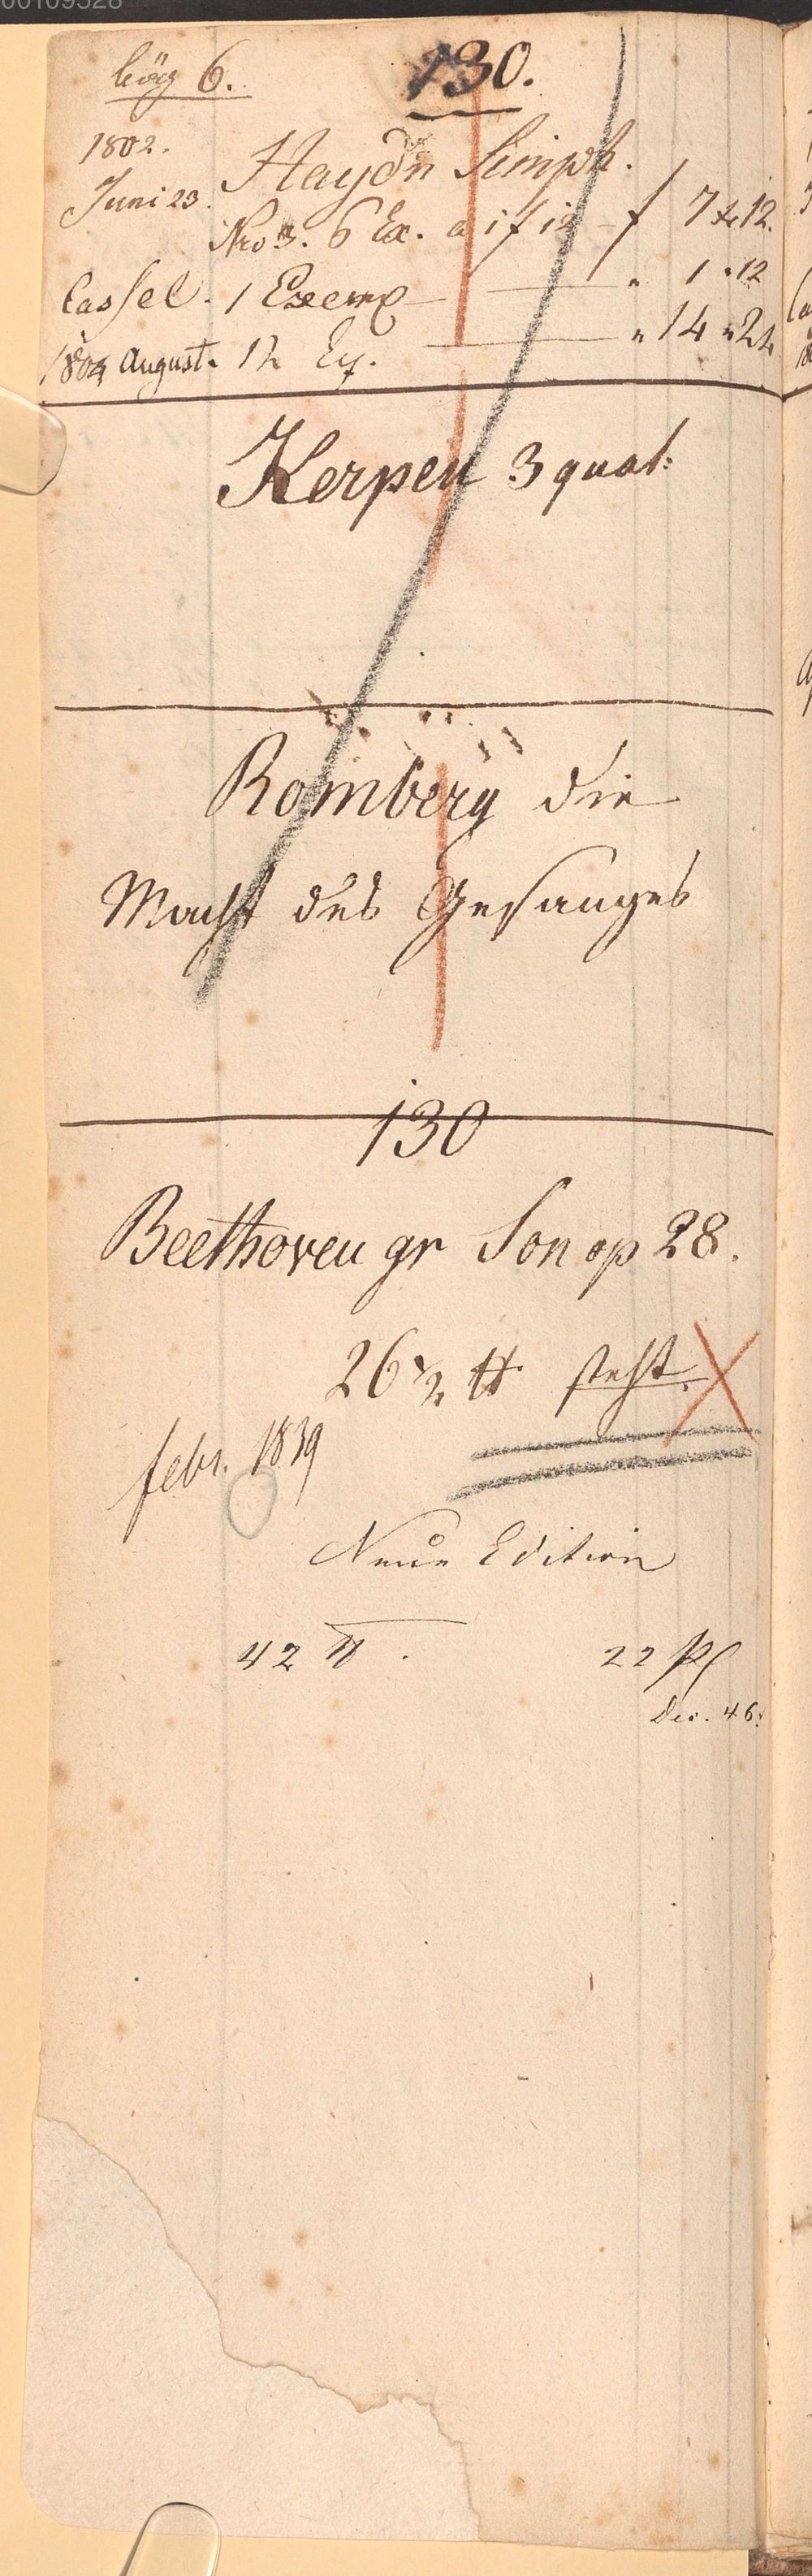 00109528
6. 130.
1802. Haydn Simph.
Juni 23. Nro 3. 6 Ex. a 1 f 12 – f 7 x 12.
Cassel. 1 Exemp — " 1 " 12
1804 August. 12 Ex. — " 14 " 24
Kerpen 3 quat:
Romberg die
Macht des Gesanges
130
Beethoven gr Son op 28.
26 1/2 tt steht.
febr. 1839
Neue Edition
42 tt. 22 Pl
Dec. 46.